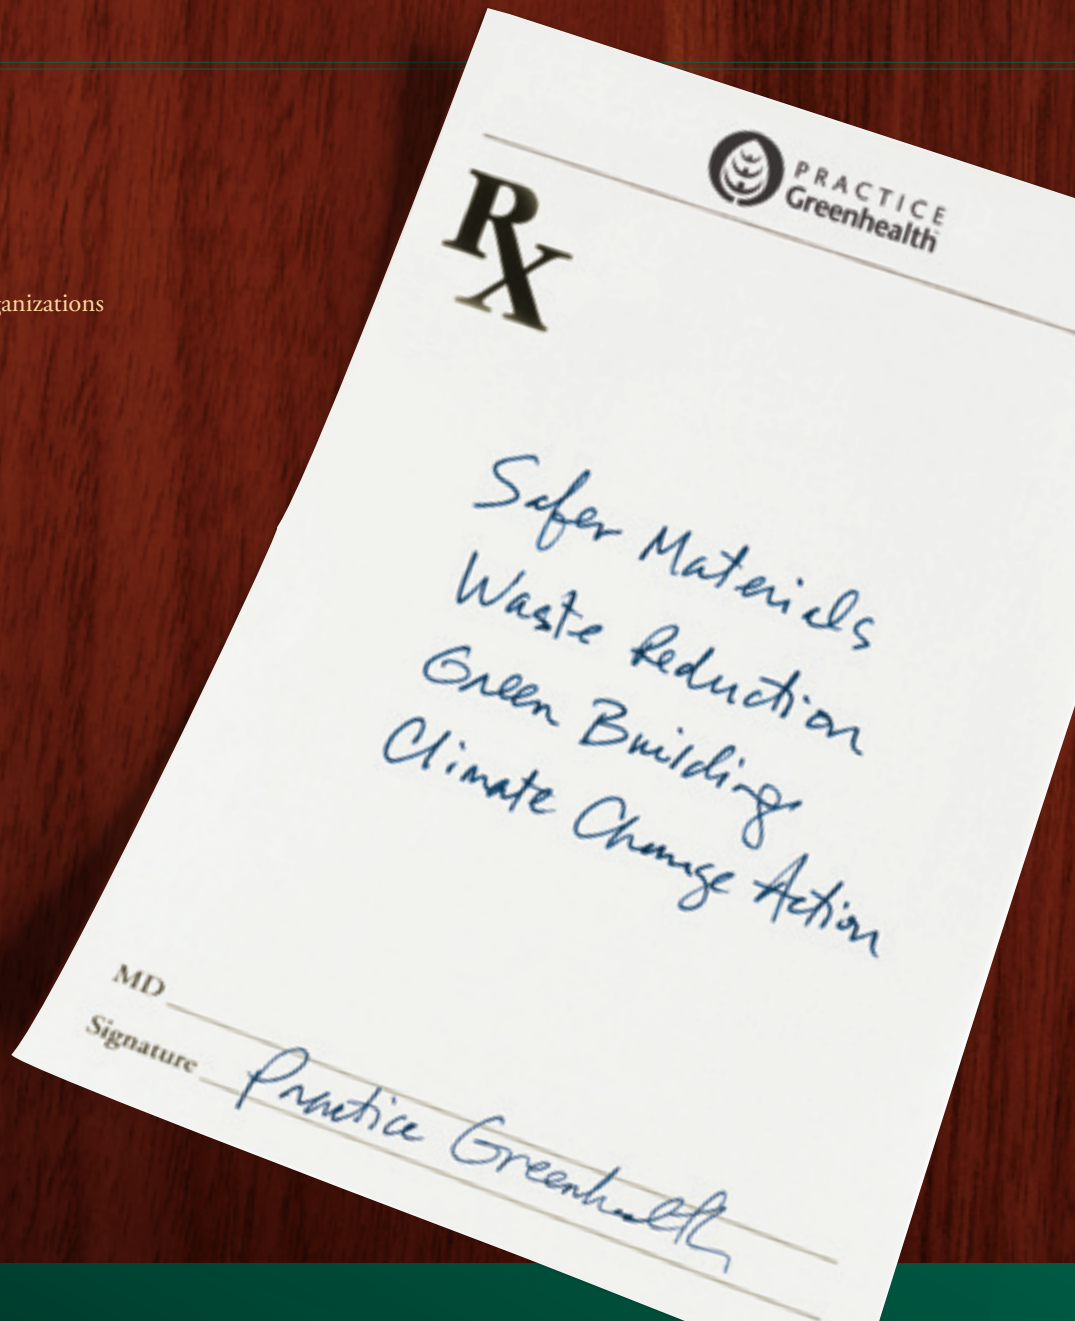 PRACTICE
Greenhealth
Rx
Safer Materials
Waste Reduction
Green Building
Climate Change Action
MD
Signature Practice Greenhealth